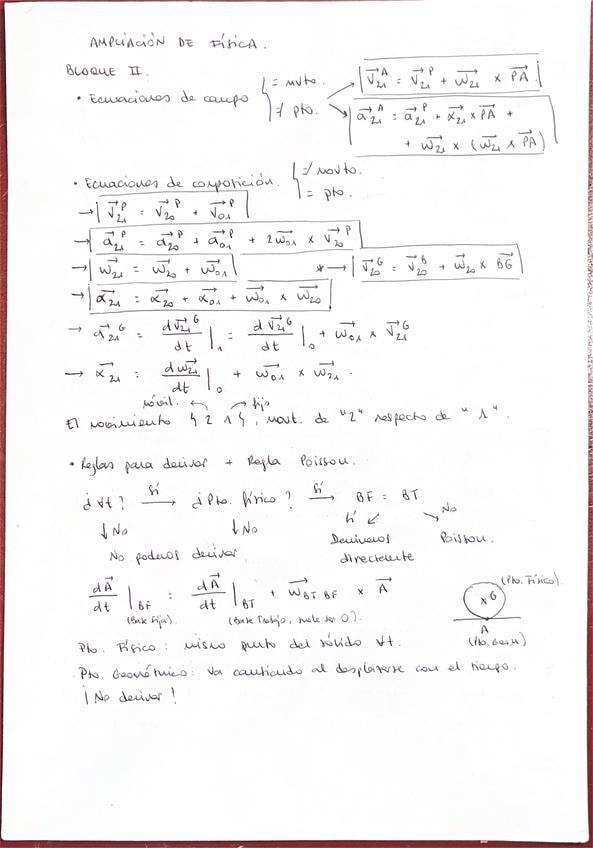 AMPLIACIÓN DE FÍSICA.
BLOQUE II.
• Ecuaciones de campo { = mvto. ≠ pto. →
v⃗₂₁ᴬ = v⃗₂₁ᴾ + ω⃗₂₁ × PA⃗
a⃗₂₁ᴬ = a⃗₂₁ᴾ + α⃗₂₁ × PA⃗ +
+ ω⃗₂₁ × (ω⃗₂₁ × PA⃗)
• Ecuaciones de composición. { ≠ movto. = pto.
→ v⃗₂₁ᴾ = v⃗₂₀ᴾ + v⃗₀₁ᴾ
→ a⃗₂₁ᴾ = a⃗₂₀ᴾ + a⃗₀₁ᴾ + 2ω⃗₀₁ × v⃗₂₀ᴾ
→ ω⃗₂₁ = ω⃗₂₀ + ω⃗₀₁ * → v⃗₂₀ᴳ = v⃗₂₀ᴮ + ω⃗₂₀ × BG⃗
→ α⃗₂₁ = α⃗₂₀ + α⃗₀₁ + ω⃗₀₁ × ω⃗₂₀
→ a⃗₂₁ᴳ = dv⃗₂₁ᴳ/dt |₁ = dv⃗₂₁ᴳ/dt |₀ + ω⃗₀₁ × v⃗₂₁ᴳ
→ α⃗₂₁ = dω⃗₂₁/dt |₀ + ω⃗₀₁ × ω⃗₂₁.
móvil. ← → fijo
El movimiento { 2 1 }, movt. de "2" respecto de "1".
• Reglas para derivar + Regla Poisson.
¿∀t? Sí → ¿Pto. físico? Sí → BF = BT
↓ No ↓ No Sí ↙ ↘ No
No podemos derivar Derivamos Poisson.
directamente
dA⃗/dt |BF = dA⃗/dt |BT + ω⃗BT BF × A⃗
(Base fija). (Base Trabajo, suele ser 0).
(Pto. Físico).
×G
A
(Pto. Geom)
Pto. Físico: mismo punto del sólido ∀t.
Pto. Geométrico: va cambiando al desplazarse con el tiempo.
¡No derivar!